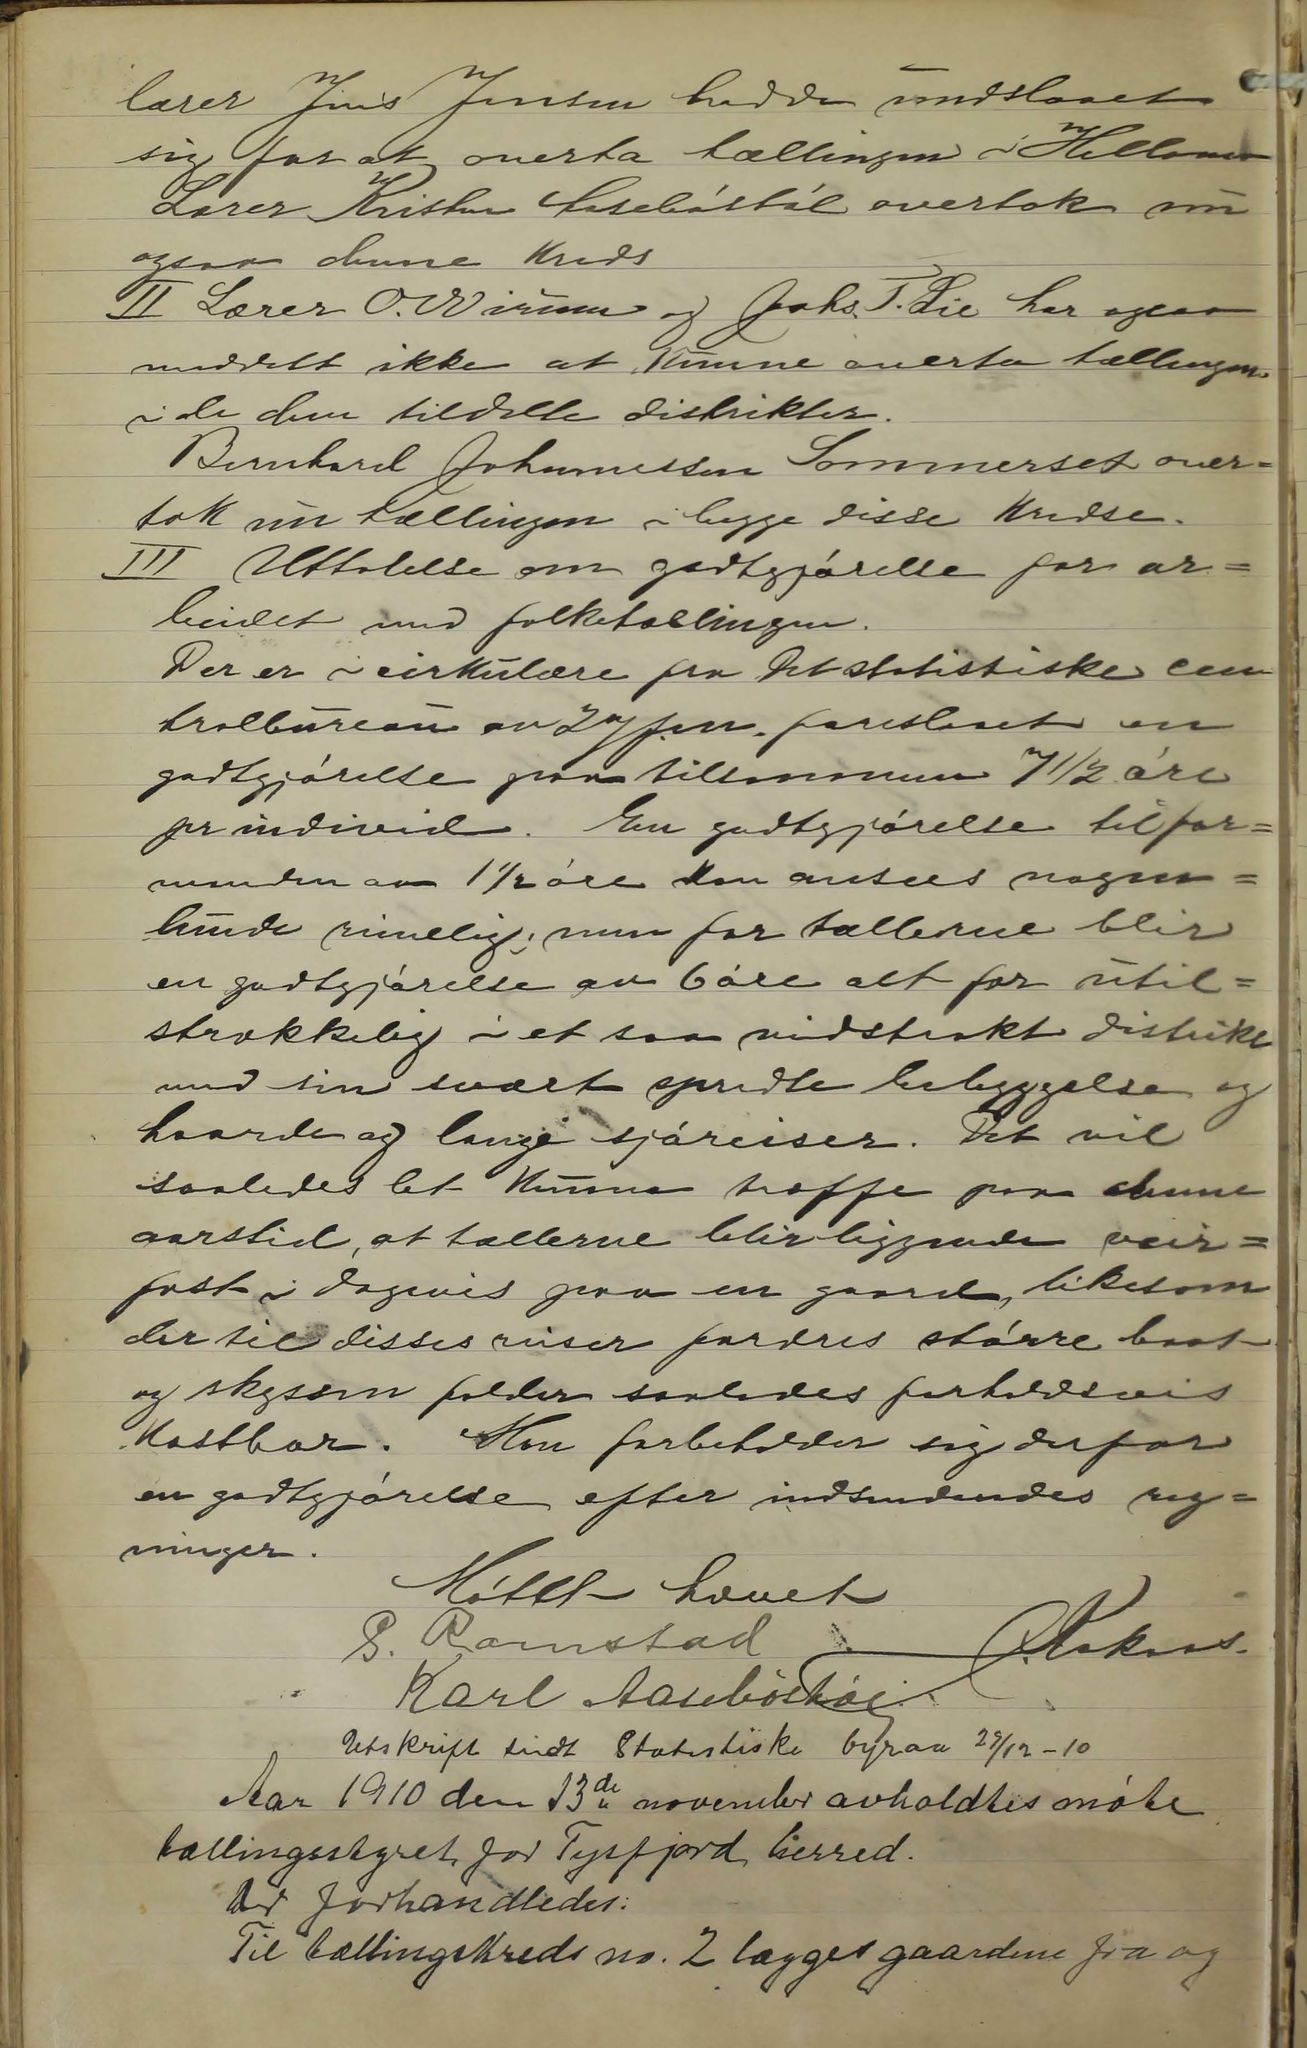 lærer Jens Jensen hadde undslaaet
sig for at overta tællingen i Hellomo
Lærer Kristen Aasebøstøl overtok nu
ogsaa denne kreds
II Lærer O. Wiium og Johs. T. Lie har ogsaa
meddelt ikke at kunne overta tællingen
i de dem tildelte distrikter.
Bernhard Johannessen Sommerset over=
tok nu tællingen i begge disse kredse.
III Uttalelse om godtgjørelse for ar=
beidet med folketællingen.
Der er i cirkulære fra Det statistiske cen
tralbureau av 27 jan. foreslaaet en
godtgjørelse paa tilsammen 7 1/2 øre
pr individ. En godtgjørelse til for=
manden av 1 1/2 øre kan ansees nogen=
lunde rimelig; men for tællerne blir
en godtgjørelse av 6 øre alt for util=
strækkelig i et saa vidstrakt distrikt
med sin svært spredte bebyggelse og
haarde og lange sjøreiser. Det vil
saaledes let kunne træffe paa denne
aarstid, at tællerne blir liggende veir=
fast i dagevis paa en gaard, likesom
der til disses reiser fordres større baat
og skyssen falder saaledes forholdsvis
kostbar. Man forbeholder sig derfor
en godtgjørelse efter indsendendes reg=
ninger.
Møtet hævet
P. Ramstad
Karl Aasebøstøl
Utskrift sendt Statistiske byraa 29/12-10
Aar 1910 den 13de november avholdtes møte
tællingsstyret for Tysfjord herred.
Der forhandledes:
Til tællingskreds no. 2 lægges gaardene fra og